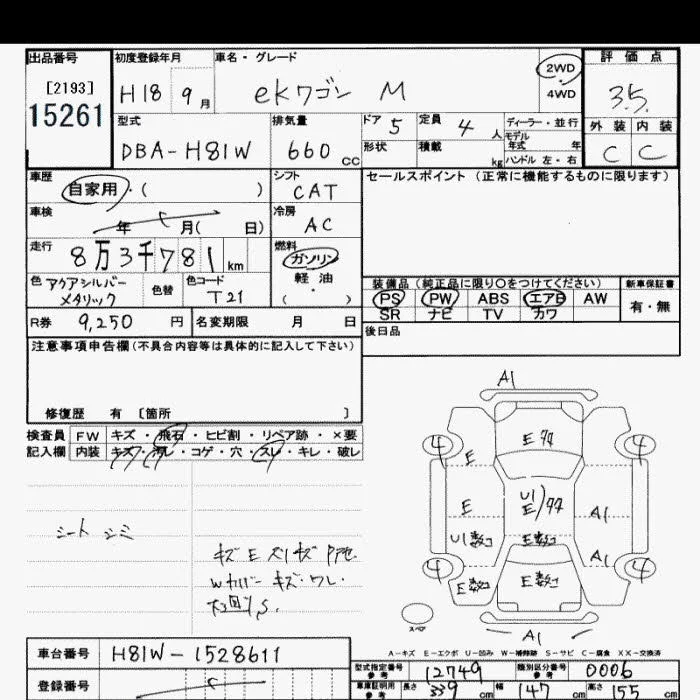 出品番号 初度登録年月 車名・グレード 評価点
[2193] H18 9月 ekワゴン M 2WD・4WD 3.5.
15261
型式 排気量 ドア 5 定員 4人 ディーラー・並行 外装 内装
DBA-H81W 660cc 形状 積載 kg モデル年式 年 ハンドル 左・右 C C
車歴 自家用・( ) シフト CAT セールスポイント (正常に機能するものに限ります)
車検 年 月( 日) 冷房 AC
走行 8万3千781km 燃料 ガソリン・軽油・( )
色 アクアシルバーメタリック 色替 色コード T21
装備品 (純正品に限り○をつけてください) 新車保証書
PS PW ABS エアB AW 有・無
SR ナビ TV カワ
R券 9,250円 名変期限 月 日 後日品
注意事項申告欄(不具合内容等は具体的に記入して下さい)
修復歴 有 [箇所 ]
検査員 FW キズ・飛石・ヒビ割・リペア跡・×要
記入欄 内装 キズ・汚レ・コゲ・穴・スレ・キレ・破レ
シート シミ
キズ E スリキズ P他
Wカバー キズ・ワレ・
A1
E
4 4
E
E U1 E A1
U1数コ E数コ A1
4 4
E数コ E数コ
スペア
A1
A-キズ E-エクボ U-凹み W-補修跡 S-サビ C-腐食 XX-交換済
車台番号 H81W-1528611
型式指定番号 参考 12749 類別区分番号 参考 0006
登録番号 車庫証明用 参考 長さ 339cm 幅 147cm 高さ 155cm